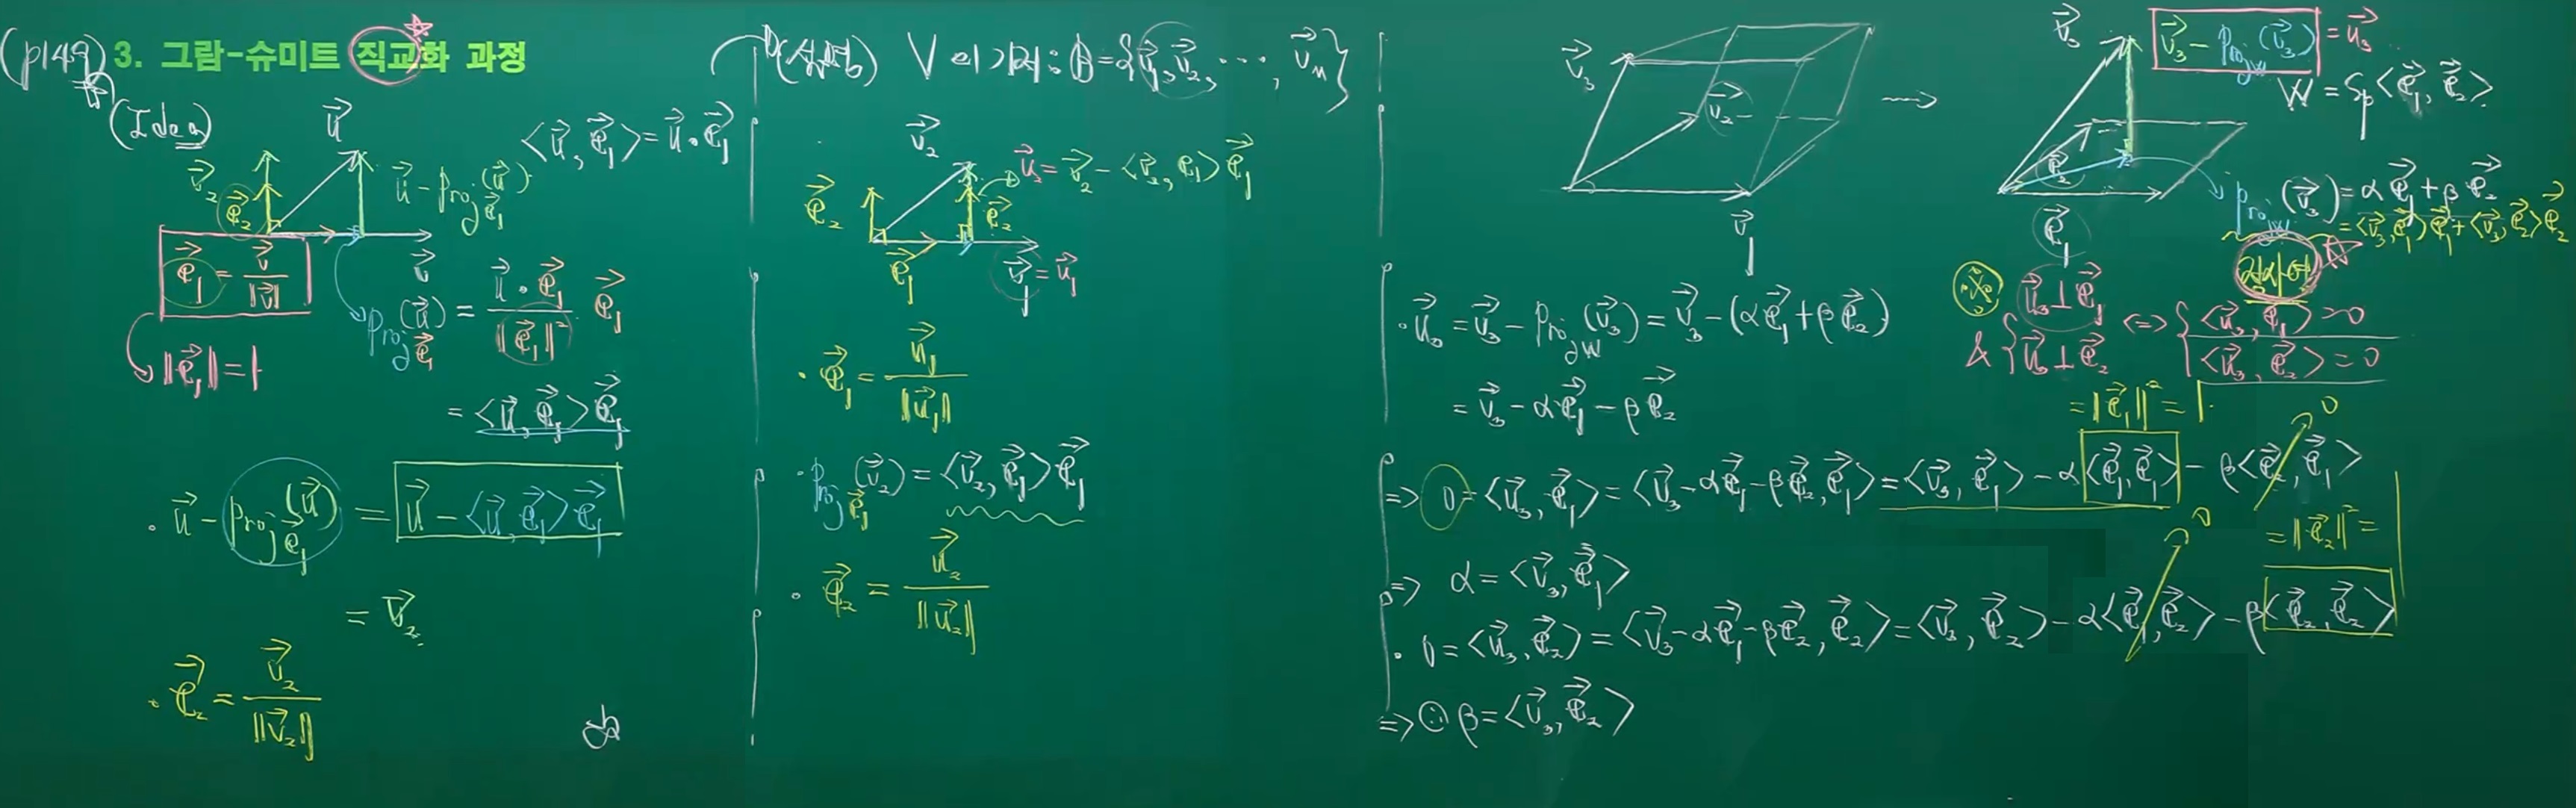 (p149) 3. 그람-슈미트 직교화 과정
(Idea)
u⃗
<u⃗, e⃗₁> = u⃗ • e⃗₁
v⃗₂
e⃗₂
u⃗ - proj_e⃗₁(u⃗)
e⃗₁ = v⃗ / ‖v⃗‖
v⃗
‖e⃗₁‖ = 1
proj_e⃗₁(u⃗) = (u⃗ • e⃗₁ / ‖e⃗₁‖²) e⃗₁
= <u⃗, e⃗₁> e⃗₁
• u⃗ - proj_e⃗₁(u⃗) = u⃗ - <u⃗, e⃗₁> e⃗₁
= v⃗₂
• e⃗₂ = v⃗₂ / ‖v⃗₂‖
(설명) V의 기저: β = {v⃗₁, v⃗₂, ⋯, v⃗ₙ}
v⃗₂
u⃗₂ = v⃗₂ - <v⃗₂, e₁> e⃗₁
e⃗₂
e⃗₂
e⃗₁
v⃗₁ = u⃗₁
• e⃗₁ = u⃗₁ / ‖u⃗₁‖
• proj_e⃗₁(v⃗₂) = <v⃗₂, e⃗₁> e⃗₁
• e⃗₂ = u⃗₂ / ‖u⃗₂‖
v⃗₃
v⃗₂
v⃗₁
→
v⃗₃
v⃗₃ - proj_W(v⃗₃) = u⃗₃
W = Sp<e⃗₁, e⃗₂>
e⃗₂
e⃗₁
proj_W(v⃗₃) = αe⃗₁ + βe⃗₂
= <v⃗₃, e⃗₁> e⃗₁ + <v⃗₃, e⃗₂> e⃗₂
※ u⃗₃ ⊥ e⃗₁
& u⃗₃ ⊥ e⃗₂
<=> { <u⃗₃, e⃗₁> = 0
<u⃗₃, e⃗₂> = 0
• u⃗₃ = v⃗₃ - proj_W(v⃗₃) = v⃗₃ - (αe⃗₁ + βe⃗₂)
= v⃗₃ - αe⃗₁ - βe⃗₂
= ‖e⃗₁‖² = 1
0
=> 0 = <u⃗₃, e⃗₁> = <v⃗₃ - αe⃗₁ - βe⃗₂, e⃗₁> = <v⃗₃, e⃗₁> - α<e⃗₁, e⃗₁> - β<e⃗₂, e⃗₁>
=> α = <v⃗₃, e⃗₁>
0
= ‖e⃗₂‖² = 1
• 0 = <u⃗₃, e⃗₂> = <v⃗₃ - αe⃗₁ - βe⃗₂, e⃗₂> = <v⃗₃, e⃗₂> - α<e⃗₁, e⃗₂> - β<e⃗₂, e⃗₂>
=> ∴ β = <v⃗₃, e⃗₂>